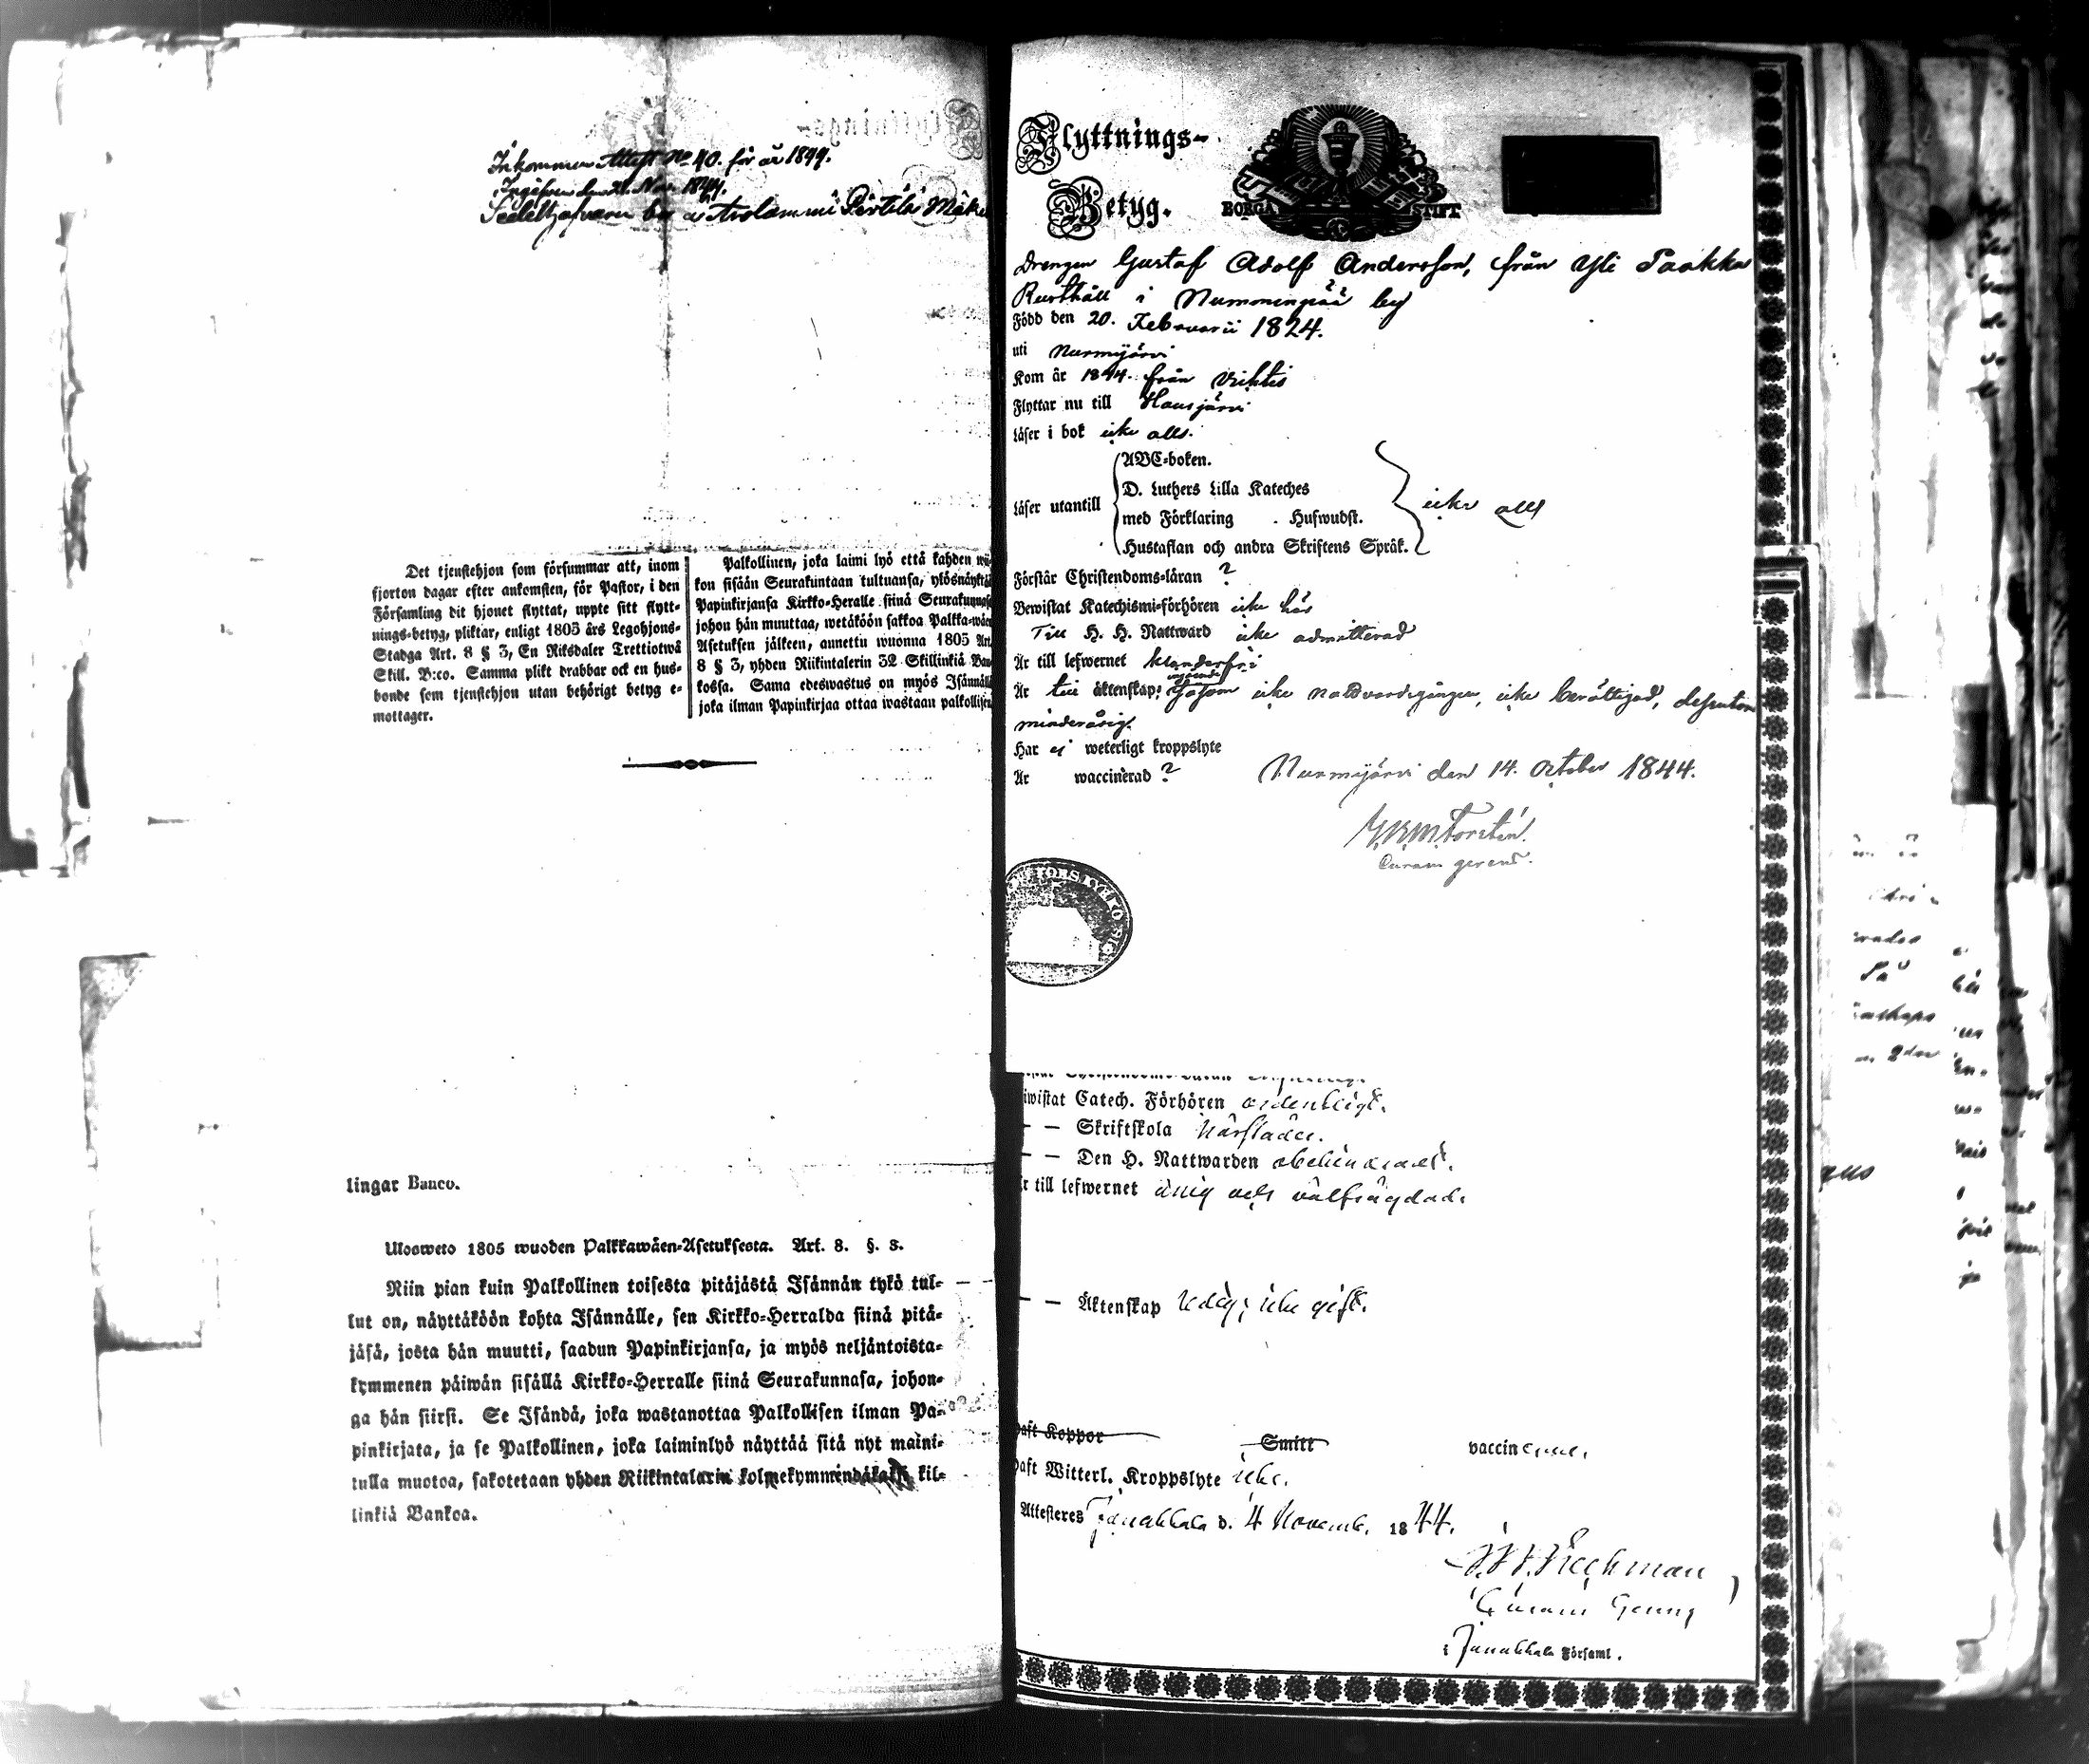 Inkommen Attest No 40. för år 1844.
Ingifven den 21. Nov. 1844.
Sedelhafvaren bor i Arolammi Pertilä
Det tjenstehjon som försummar att, inom
fjorton dagar efter ankomsten, för Pastor, i den
Församling dit hjonet flyttat, uppte sitt flytt-
nings-betyg, pliktar, enligt 1805 års Legohjons-
Stadga Art. 8 § 3, En Riksdaler Trettiotwå
Skill. B:co. Samma plikt drabbar ock en hus-
bonde som tjenstehjon utan behörigt betyg e-
mottager.
Palkollinen, joka laimi lyö että kahden
kon sisään Seurakuntaan tultuansa, ylösnäyttä
Papinkirjansa Kirkko-Heralle siinä Seurakunnasa
johon hän muuttaa, wetäköön sakkoa Palkka-wäen
Asetuksen jälkeen, annettu wuonna 1805 Art.
8 § 3, yhden Riikintalerin 32 Skillinkiä Ban
kossa. Sama edeswastus on myös Isännällä
joka ilman Papinkirjaa ottaa wastaan palkollisen
lingar Banco.
Ulosweto 1805 wuoden Palkkawäen-Asetuksesta. Art. 8. §. 3.
Niin pian kuin Palkollinen toisesta pitäjästä Isännän tykö tul-
lut on, näyttäköön kohta Isännälle, sen Kirkko-Herralda siinä pitä-
jäsä, josta hän muutti, saadun Papinkirjansa, ja myös neljäntoista-
kymmenen päiwän sisällä Kirkko-Herralle siinä Seurakunnasa, johon-
ga hän siirsi. Se Isändä, joka wastanottaa Palkollisen ilman Pa-
pinkirjata, ja se Palkollinen, joka laiminlyö näyttää sitä nyt maini-
tulla muotoa, sakotetaan yhden Riikintalarin kolmekymmendäkaksi kil-
linkiä Bankoa.
Flyttnings-
Betyg.
BORGÅ STIFT
Drengen Gustaf Adolf Andersson, från Yli Paakka
Rusthåll i Nummenpää by
Född den 20. Februarii 1824.
uti Nurmijärvi
Kom år 1844. från Wichtis
Flyttar nu till Hausjärvi
Läser i bok icke alls.
Läser utantill
ABC-boken.
D. Luthers Lilla Kateches
med Förklaring . Hufwudst.
Hustaflan och andra Skriftens Språk.
icke alls
Förstår Christendoms-läran ?
Bewistat Katechismi-förhören icke här
Till H. H. Nattward icke admitterad
Är till lefwernet klanderfri
Är till äktenskap: såsom icke nattvardsgången, icke berättigad, dessutom
minderårig.
Har ej weterligt kroppslyte
Är waccinerad ?
Nurmijärvi den 14. October 1844.
Curam gerens.
wistat Catech. Förhören ordentligt.
— — Skriftskola
— — Den H. Nattwarden
r till lefwernet ärlig och välfrägdad.
— — Äktenskap ledig; icke gift.
Haft Koppor Smitt vaccinerad.
Haft Witterl. Kroppslyte icke.
Attesteres Janakkala d. 4 Novemb. 1844.
i Janakkala Församl.